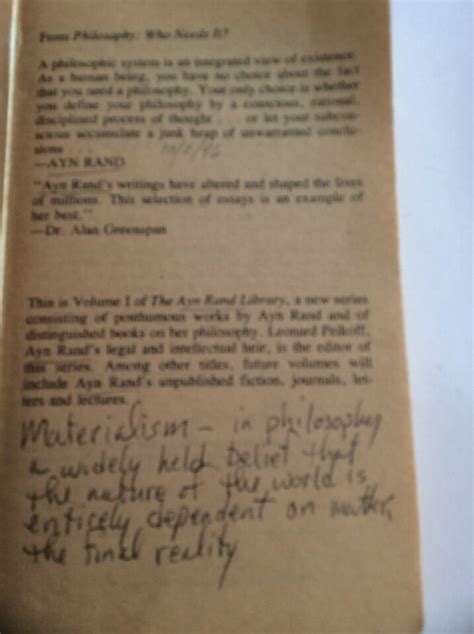 From Philosophy: Who Needs It?
A philosophic system is an integrated view of existence.
As a human being, you have no choice about the fact
that you need a philosophy. Your only choice is whether
you define your philosophy by a conscious, rational,
disciplined process of thought . . . or let your subcon-
scious accumulate a junk heap of unwarranted conclu-
sions . . .
—AYN RAND
"Ayn Rand's writings have altered and shaped the lives
of millions. This selection of essays is an example of
her best."
—Dr. Alan Greenspan
This is Volume I of The Ayn Rand Library, a new series
consisting of posthumous works by Ayn Rand and of
distinguished books on her philosophy. Leonard Peikoff,
Ayn Rand's legal and intellectual heir, is the editor of
this series. Among other titles, future volumes will
include Ayn Rand's unpublished fiction, journals, let-
ters and lectures.
Materialism – in philosophy
a widely held belief that
the nature of the world is
entirely dependent on matter,
the final reality